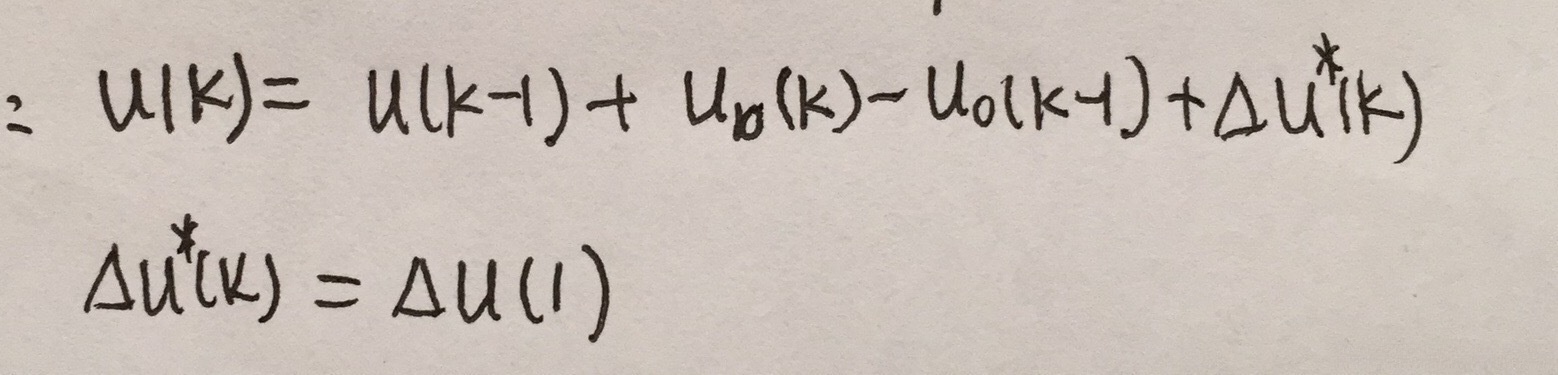 : U(k) = U(k-1) + U₀(k) - U₀(k-1) + ΔU*(k)
ΔU*(k) = ΔU(1)